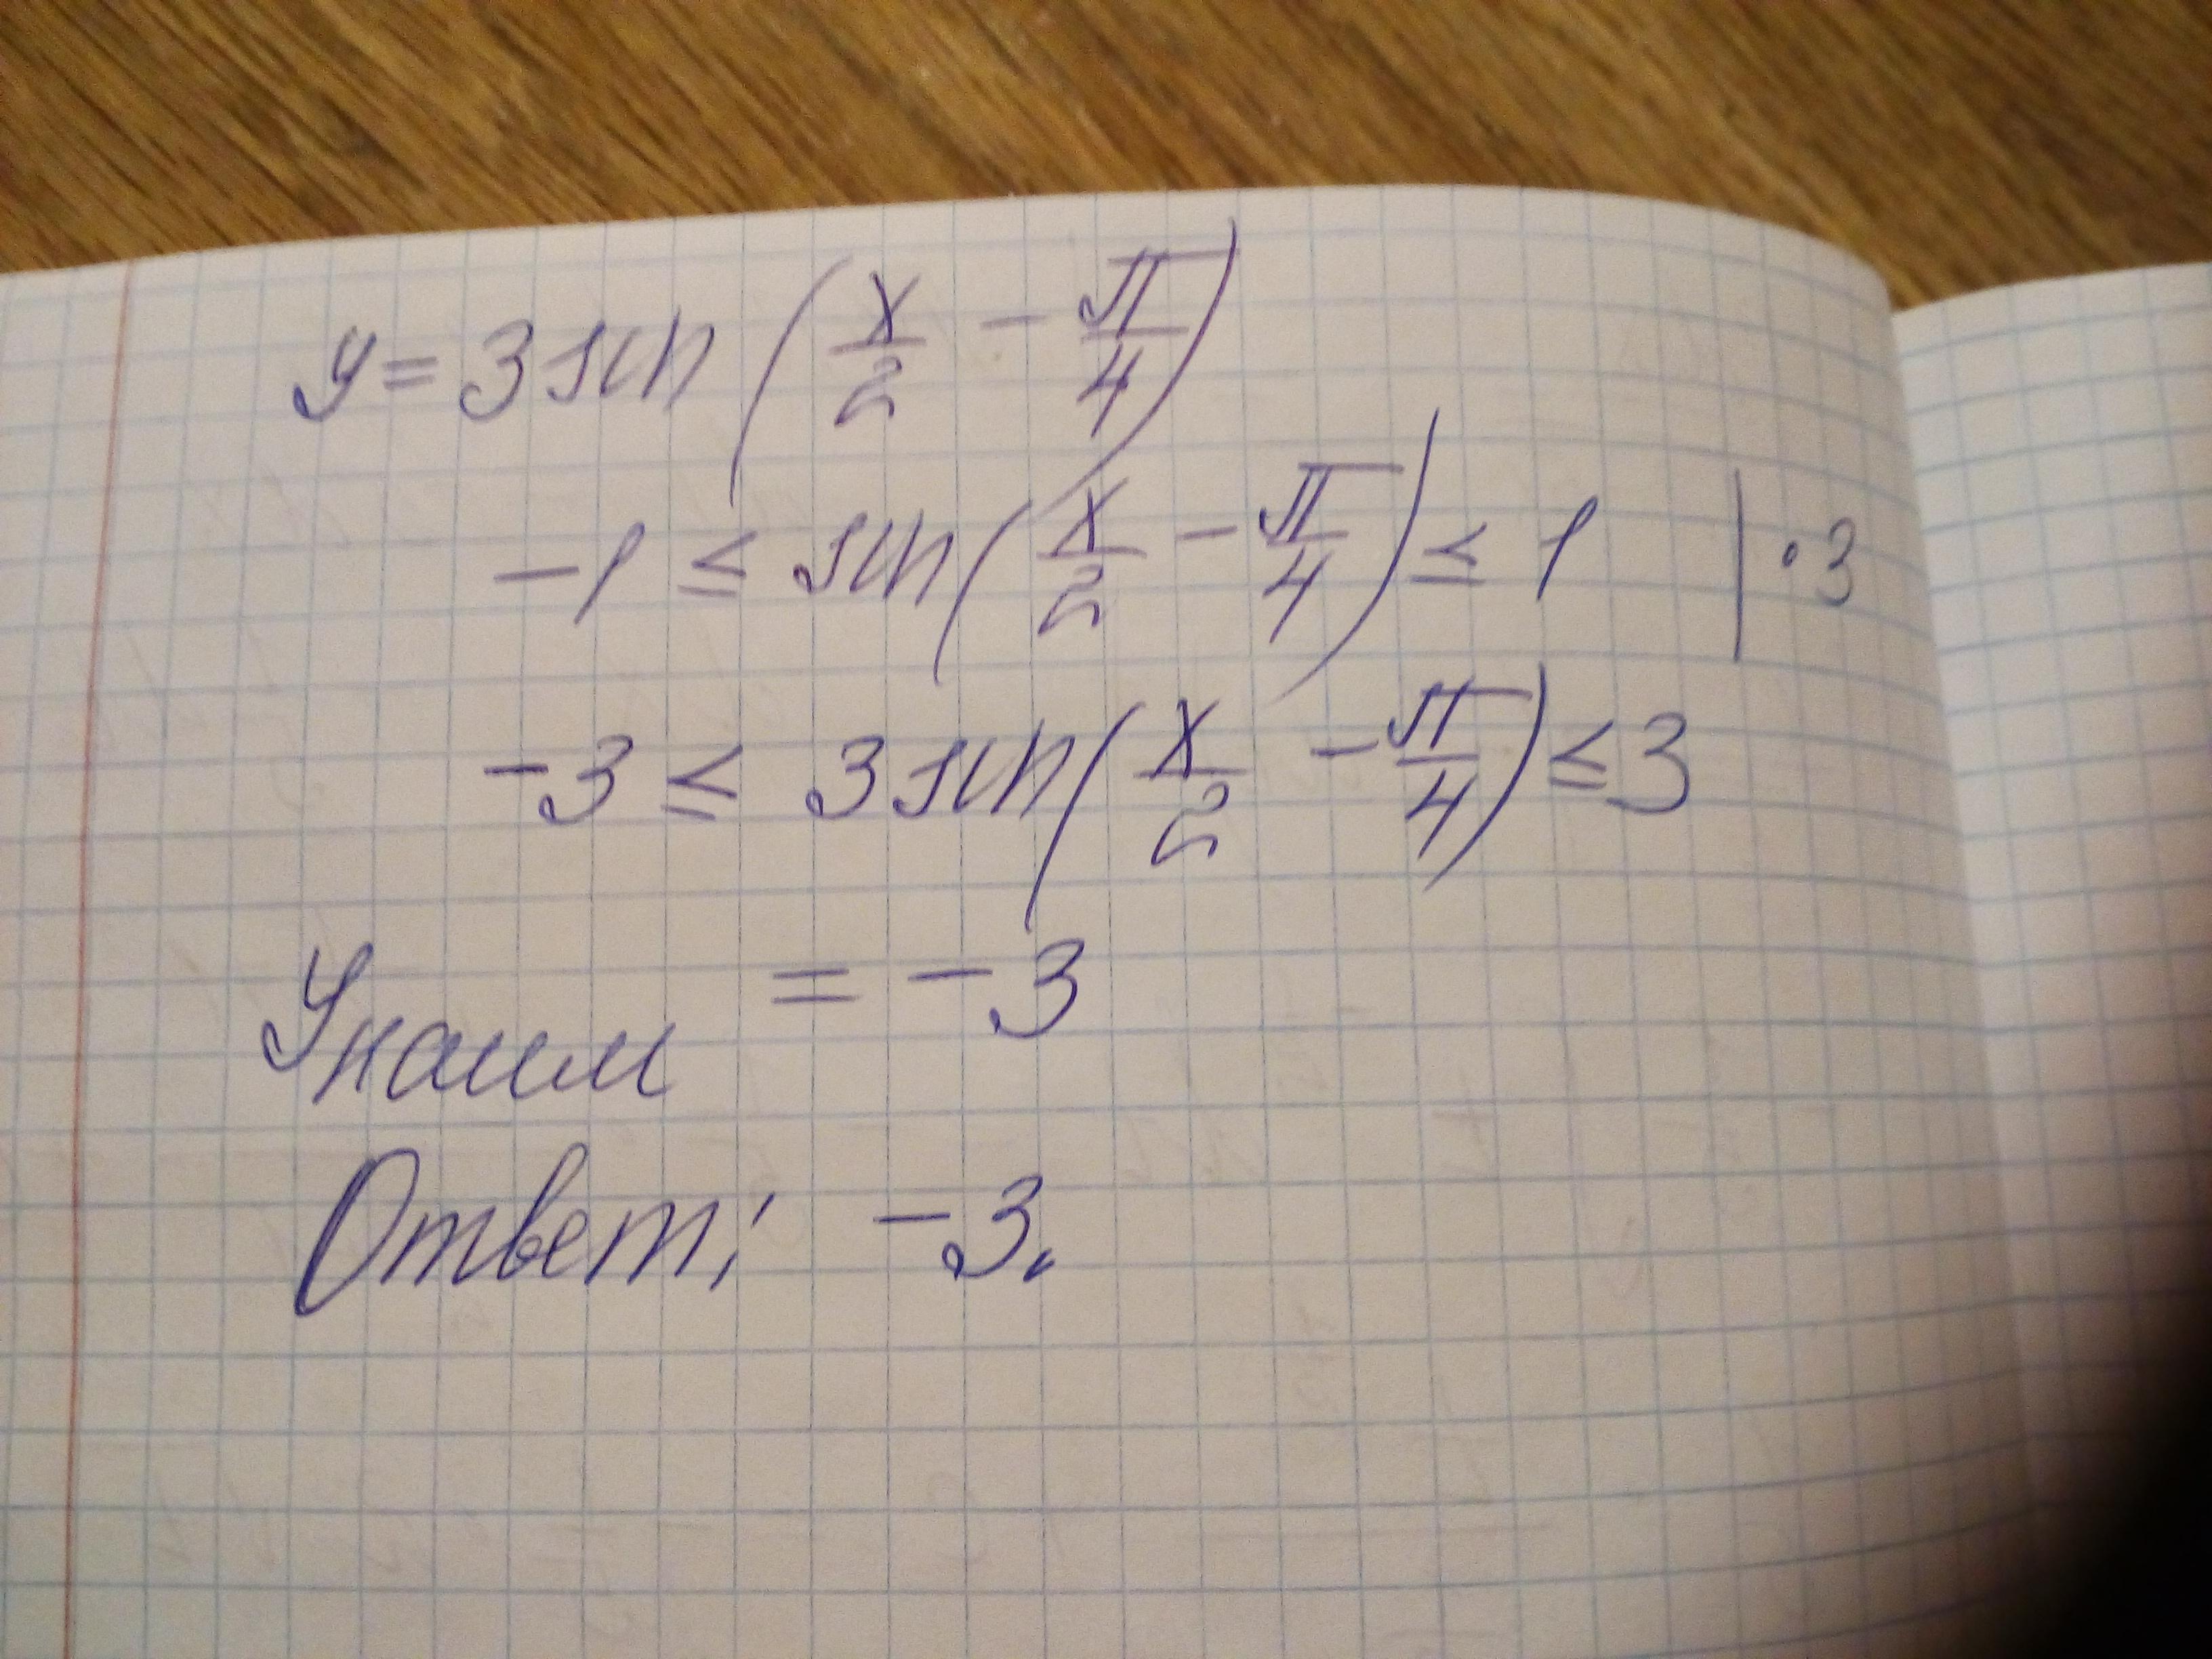 y = 3 sin (x/2 - π/4)
-1 ≤ sin (x/2 - π/4) ≤ 1 | · 3
-3 ≤ 3 sin (x/2 - π/4) ≤ 3
Yнаим = -3
Ответ: -3.